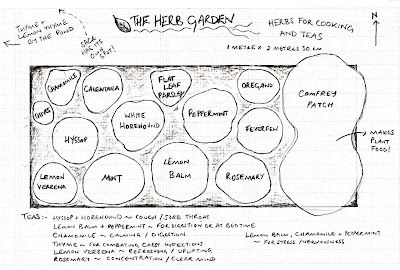 THE HERB GARDEN
HERBS FOR COOKING
AND TEAS
N
THYME +
LEMON THYME
BY THE POND
SAGE
HAS ITS
OWN
SPOT!
1 METRE x 2 METRES 50 CM
CHAMOMILE
CALENDULA
FLAT
LEAF
PARSLEY
OREGANO
COMFREY
PATCH
CHIVES
WHITE
HOREHOUND
PEPPERMINT
HYSSOP
FEVERFEW
MAKES
PLANT
FOOD!
LEMON
VERBENA
MINT
LEMON
BALM
ROSEMARY
TEAS:- HYSSOP + HOREHOUND ~ COUGH / SORE THROAT
LEMON BALM + PEPPERMINT ~ FOR DIGESTION OR AT BEDTIME
CHAMOMILE ~ CALMING / DIGESTION
THYME ~ FOR COMBATING CHEST INFECTIONS
LEMON VERBENA ~ REFRESHING / UPLIFTING
ROSEMARY ~ CONCENTRATION / CLEAR MIND
LEMON BALM, CHAMOMILE + PEPPERMINT
~ FOR STRESS / NERVOUSNESS